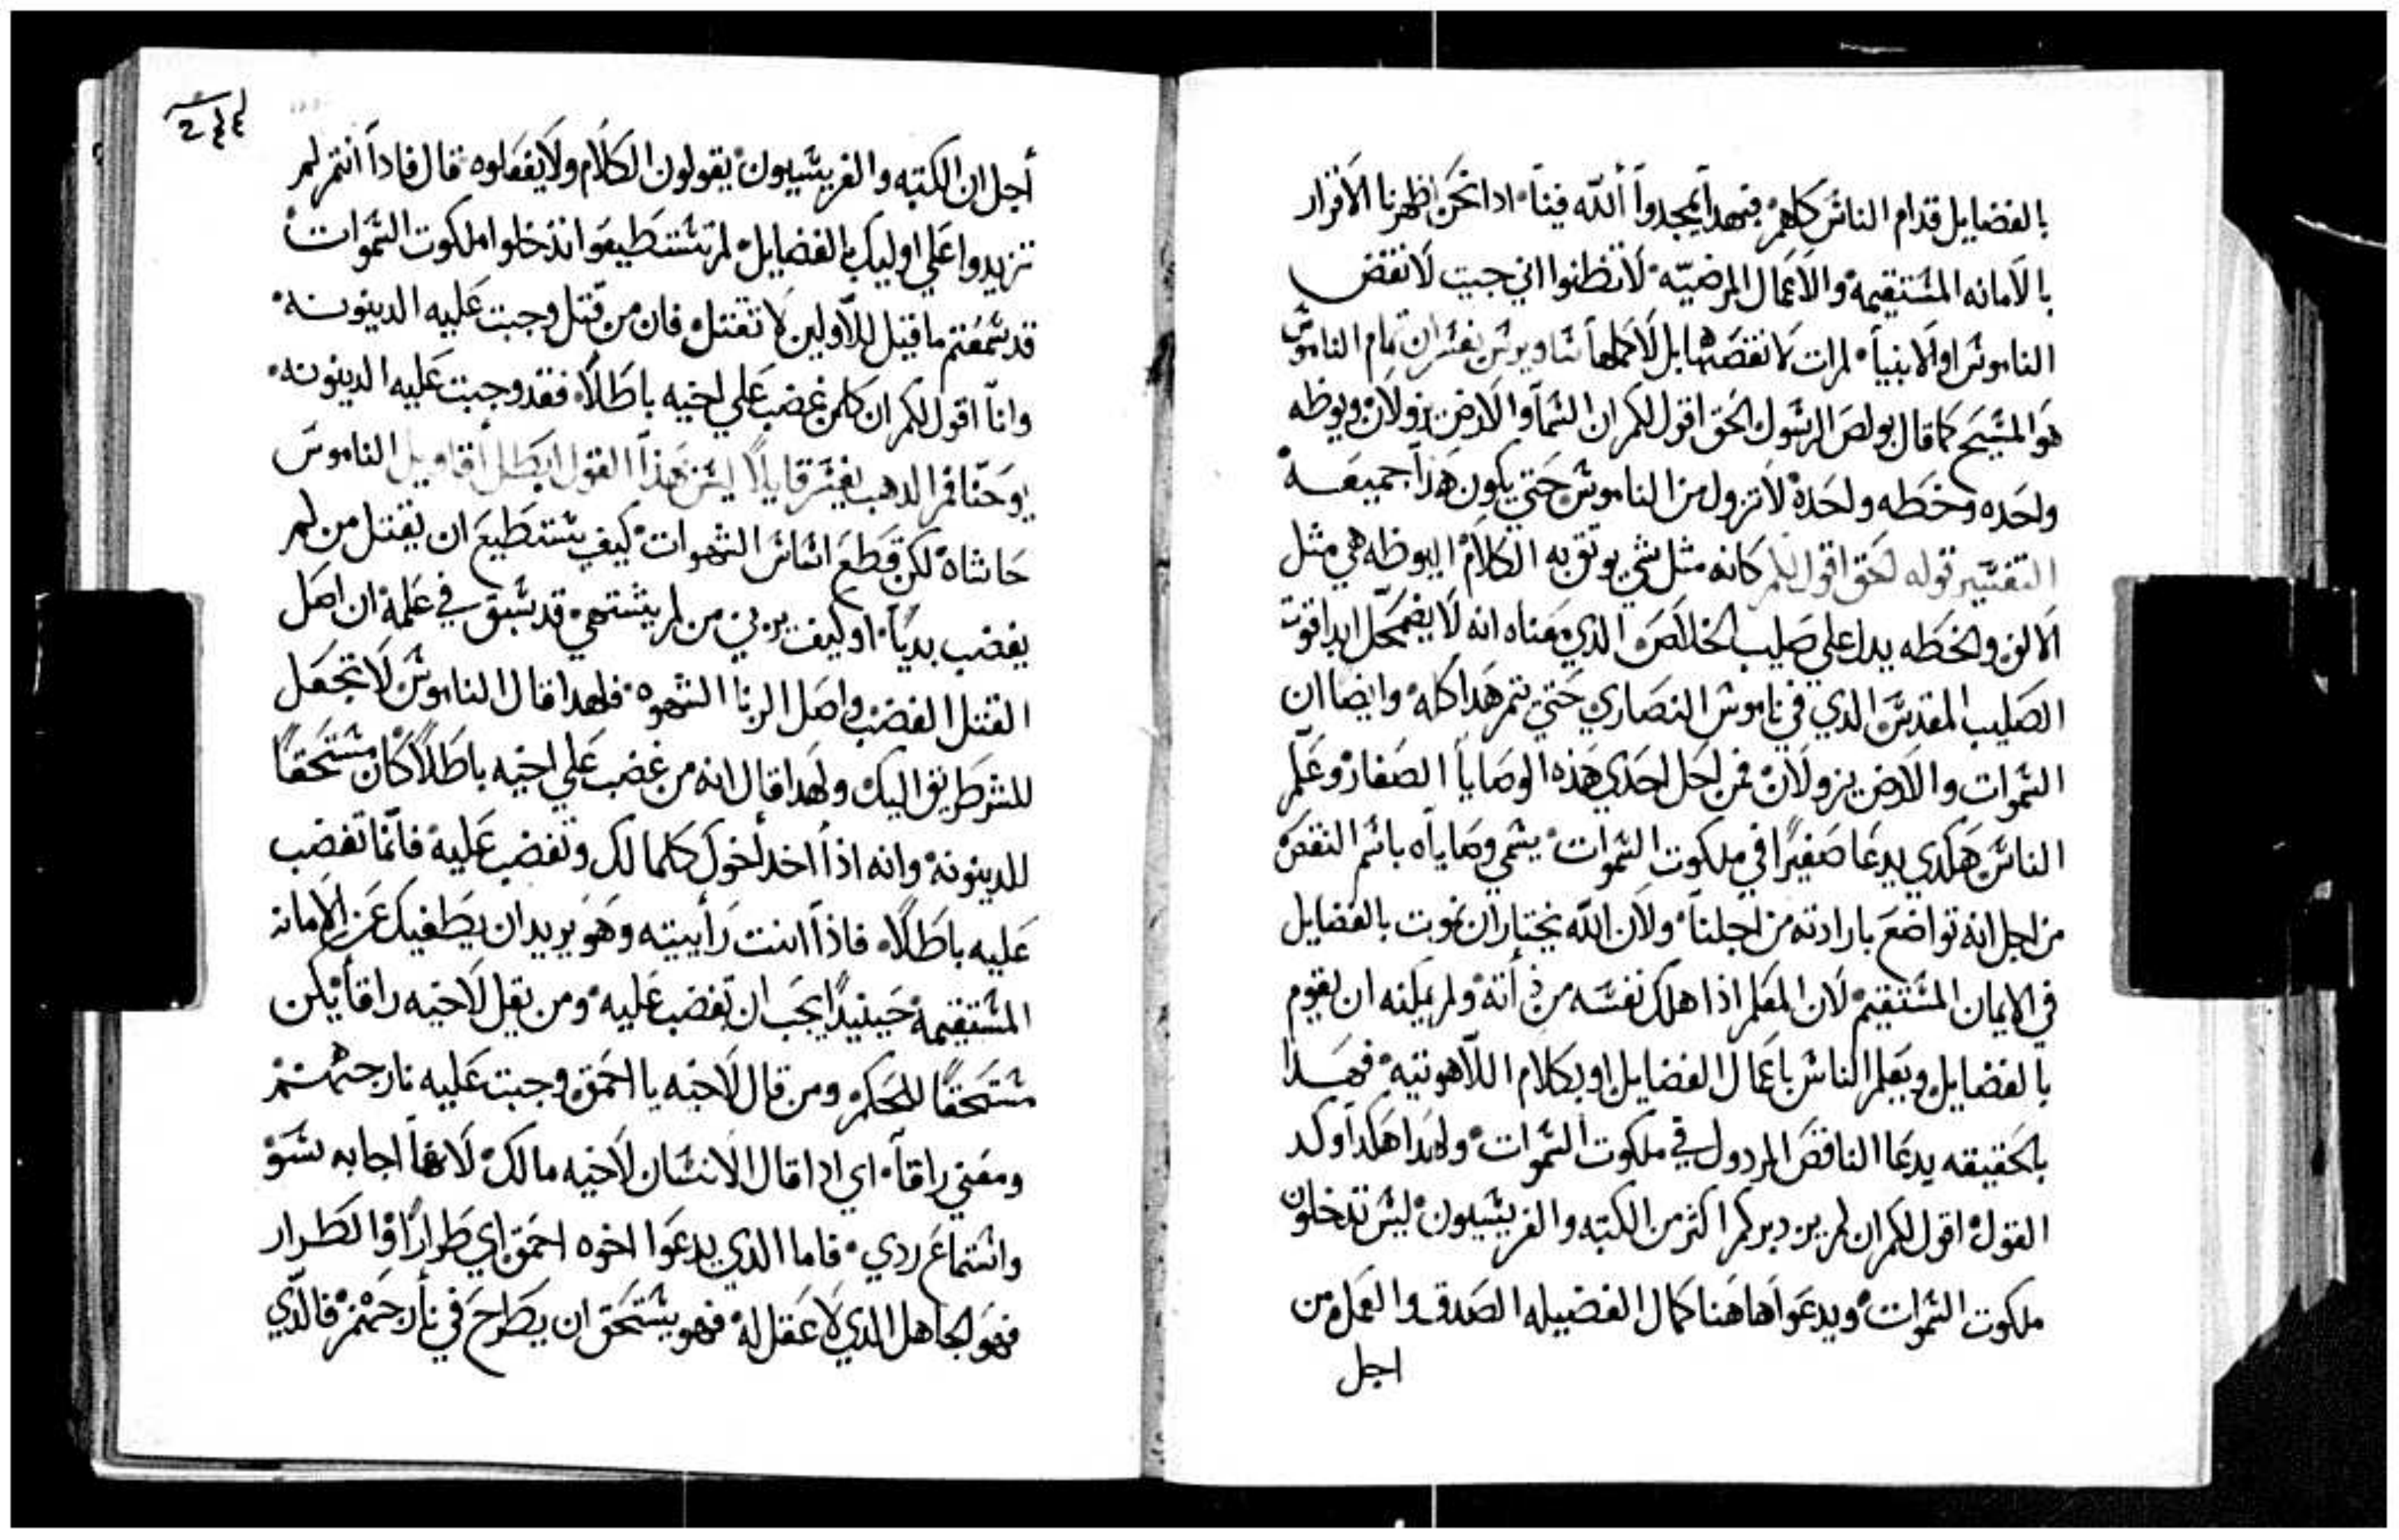 بالفضايل قدام الناس كلهم فبهدا يمجدوا الله فينا ادا نحن اظهرنا الاقرار
بالامانه المستقيمه والاعمال المرضيه لا تظنوا اني جيت لانقض
الناموس او الانبيا لم ات لانقضها بل لاكملها ساويرس يفسر ان تمام الناموس
هو المسيح كما قال بولص الرسول الحق اقول لكم ان السما والارض يزولان ويوظه
واحده وخطه واحده لا تزول من الناموس حتي يكون هذا جميعه
التفسير قوله الحق اقول لكم كانه مثل شي يوثق به الكلام اليوظه هي مثل
الالف والخطه يدل علي صليب الخلاص الذي معناه انه لا يضمحل ابدا قوت
الصليب المقدس الذي في ناموس النصاري حتي يتم هدا كله وايضا ان
السموات والارض يزولان فمن احل احدي هذه الوصايا الصغار وعلم
الناس هكدي يدعا صغيرا في ملكوت السموات يسمي وصاياه باسم النقص
من اجل انه تواضع بارادته من اجلنا ولان الله يختار ان نوبت بالفضايل
في الايمان المستقيم لان المعلم اذا هلك نفسه من ذاته ولم يمكنه ان يقوم
بالفضايل ويعلم الناس باعمال الفضايل او بكلام اللاهوتيه فهدا
بالحقيقه يدعا الناقص المردول في ملكوت السموات ولهدا هكدا وكد
القول اقول لكم ان لم يزد بركم اكثر من الكتبه والفريسيون ليس تدخلون
ملكوت السموات ويدعوا هاهنا كمال الفضيله الصدق والعمل من
اجل
٢٤٤
أجل ان الكتبه والفريسيون يقولون الكلام ولا يفعلوه قال فادا انتم لم
تزيدوا علي اوليك بالفضايل لم تستطيعوا تدخلوا ملكوت السموات
قد سمعتم ما قيل للاولين لا تقتل فان من قتل وجبت عليه الدينونه
وانا اقول لكم ان كلمن غضب علي اخيه باطلا فقد وجبت عليه الدينونه
يوحنا فم الدهب يفسر قايلا ليس هذا القول ابطل اقاويل الناموس
حاشاه لكن قطع اساس الشهوات كيف يستطيع ان يقتل من لم
يغضب بديا او كيف يزني من لم يشتهي قد سبق في علمه ان اصل
القتل الغضب واصل الزنا الشهوه فلهدا قال الناموس لا تجعل
للشر طريق اليك ولهدا قال انه من غضب علي اخيه باطلا كان مستحقا
للدينونه وانه اذا اخد اخوك كلما لك وتغضب عليه فانما تغضب
عليه باطلا فاذا انت رأيته وهو يريد ان يطغيك عن الامانه
المستقيمه حينيدا يجب ان تغضب عليه ومن يقل لاخيه راقا يكن
مستحقا للحكم ومن قال لاخيه يا احمق وجبت عليه نار جهنم
ومعني راقا اي ادا قال الانسان لاخيه مالك لانها اجابه بسو
واستماع ردي فاما الذي يدعوا اخوه احمق اي طرارا والطرار
فهو الجاهل الذي لا عقل له فهو يستحق ان يطرح في نار جهنم فالذي